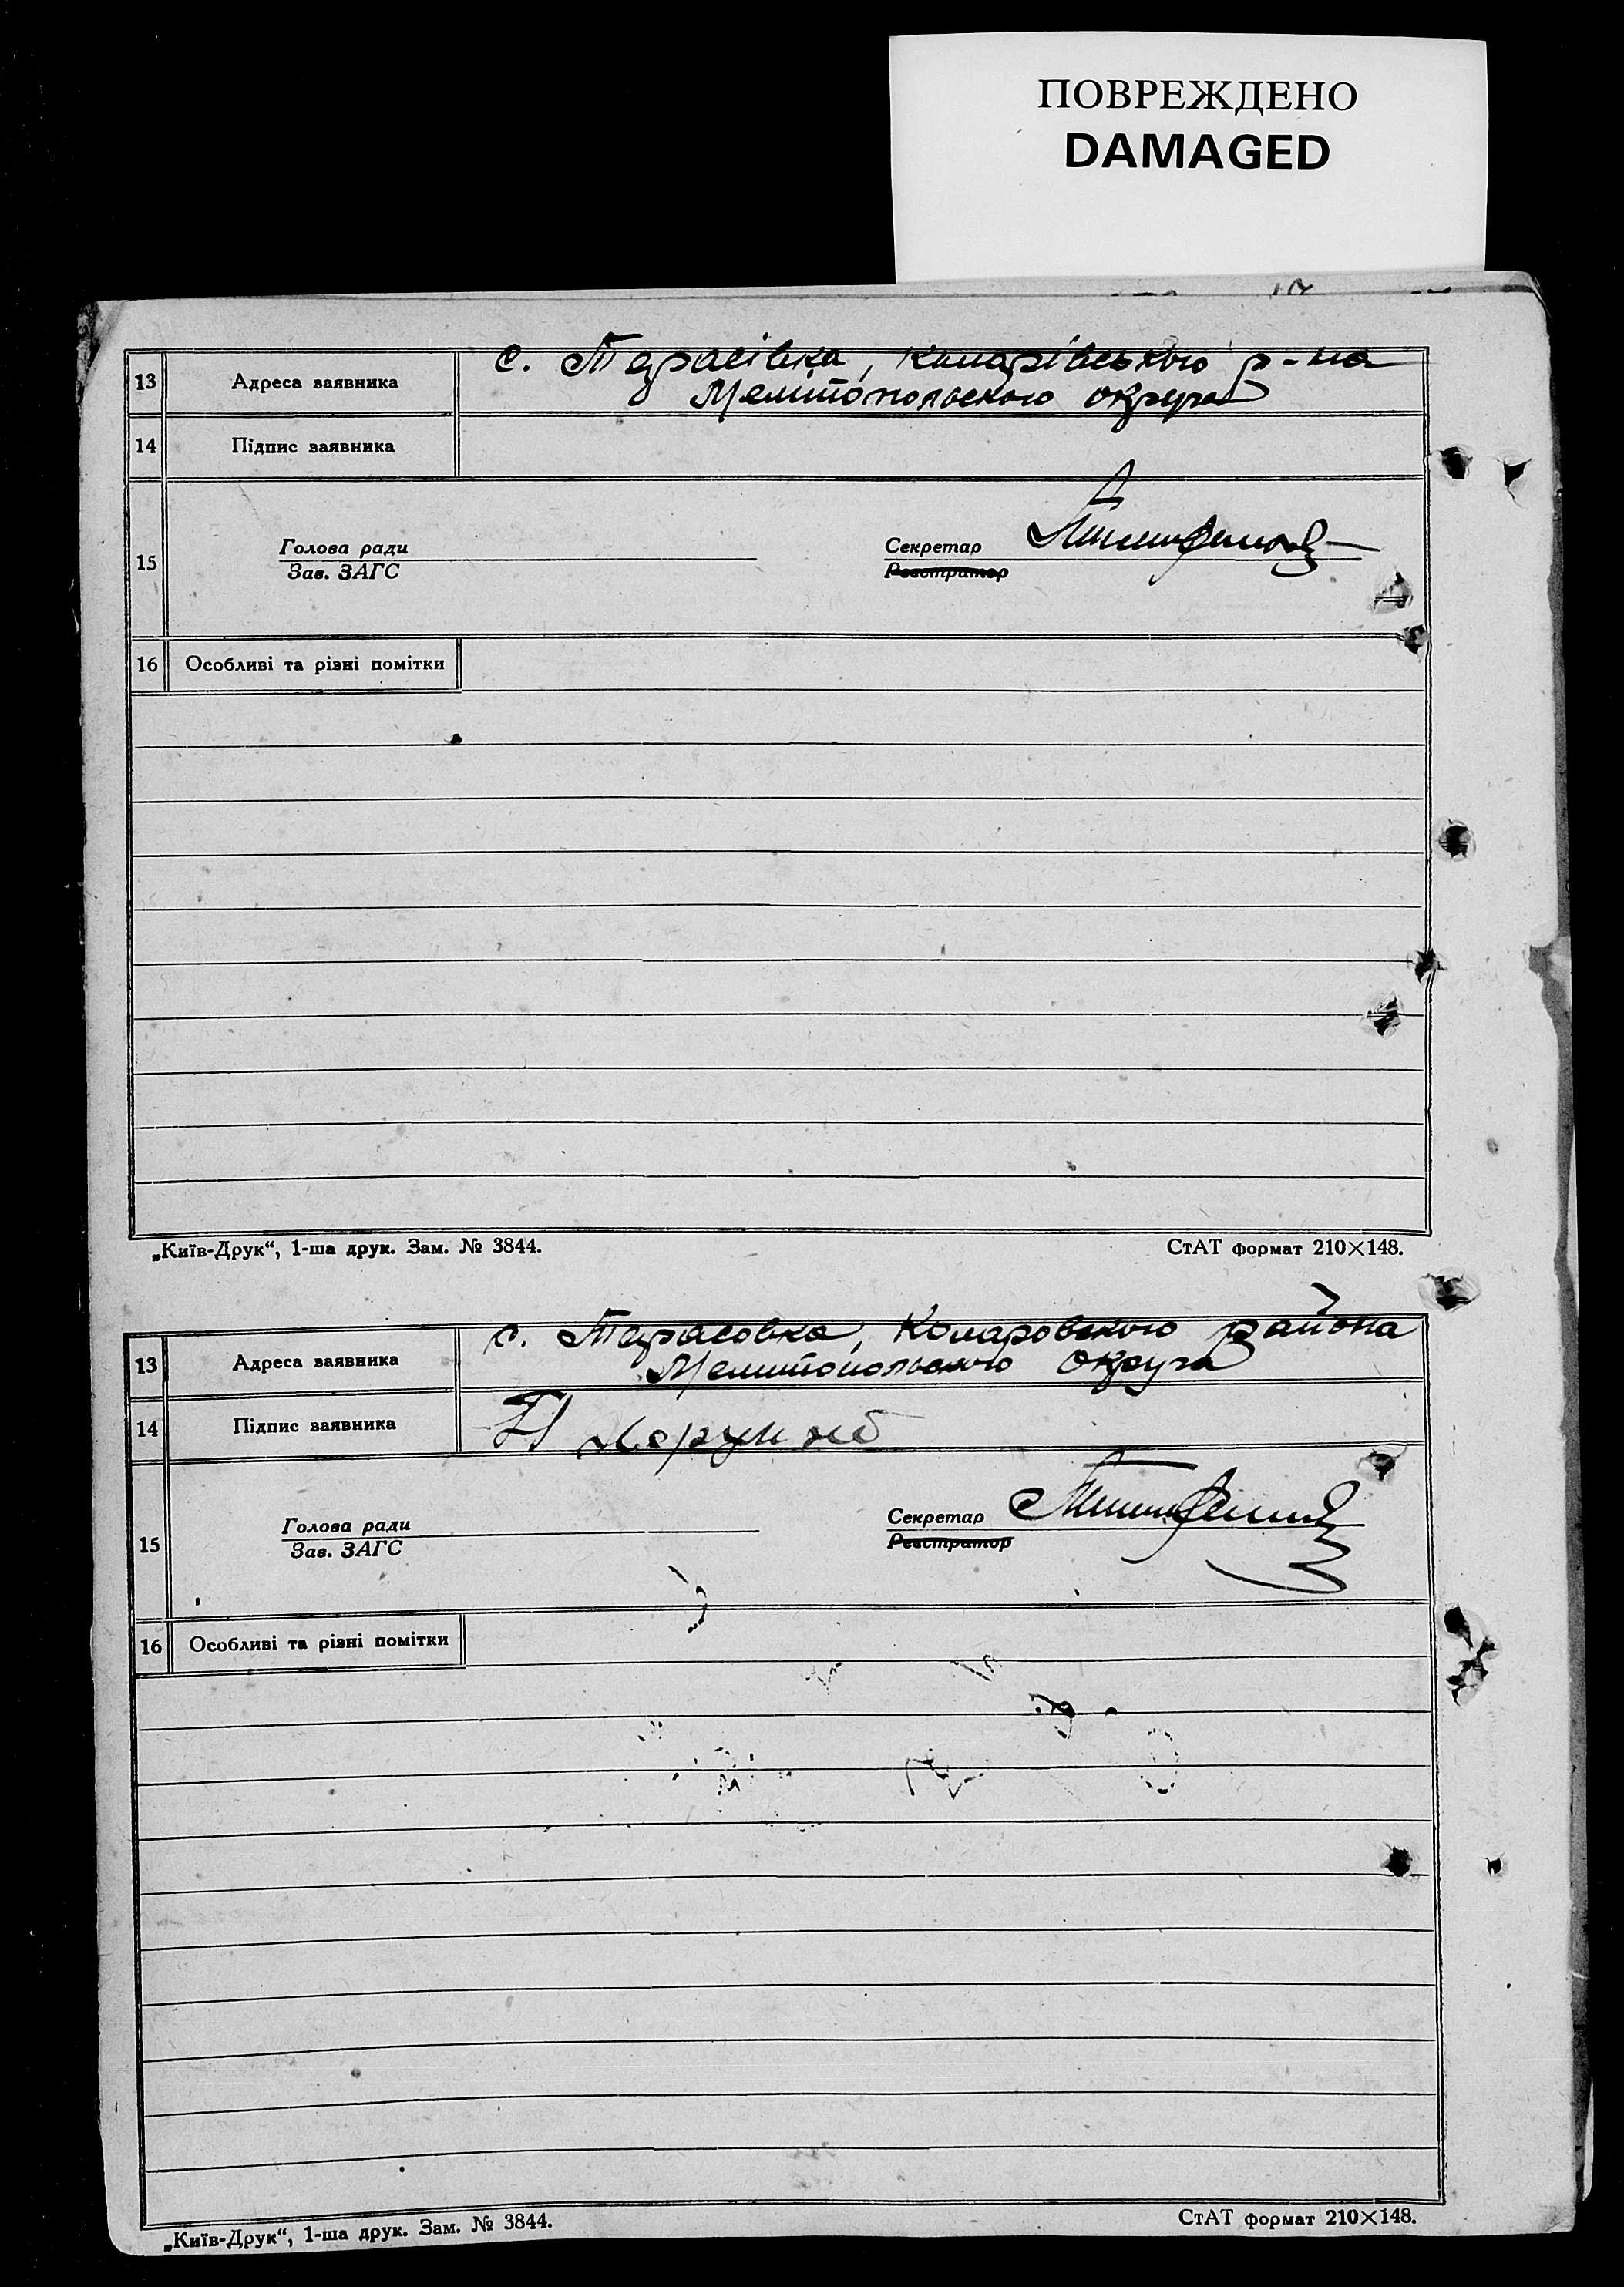 ПОВРЕЖДЕНО
DAMAGED
13 Адреса заявника с. Тарасівка, Комарівського р-на
Мелітопольского округа
14 Підпис заявника
15 Голова ради Секретар
Зав. ЗАГС Реєстратор
16 Особливі та різні помітки
„Київ-Друк“, 1-ша друк. Зам. № 3844. СтАТ формат 210×148.
13 Адреса заявника с. Тарасовка, Комаровского района
Мелитопольского округа
14 Підпис заявника
15 Голова ради Секретар
Зав. ЗАГС Реєстратор
16 Особливі та різні помітки
„Київ-Друк“, 1-ша друк. Зам. № 3844. СтАТ формат 210×148.